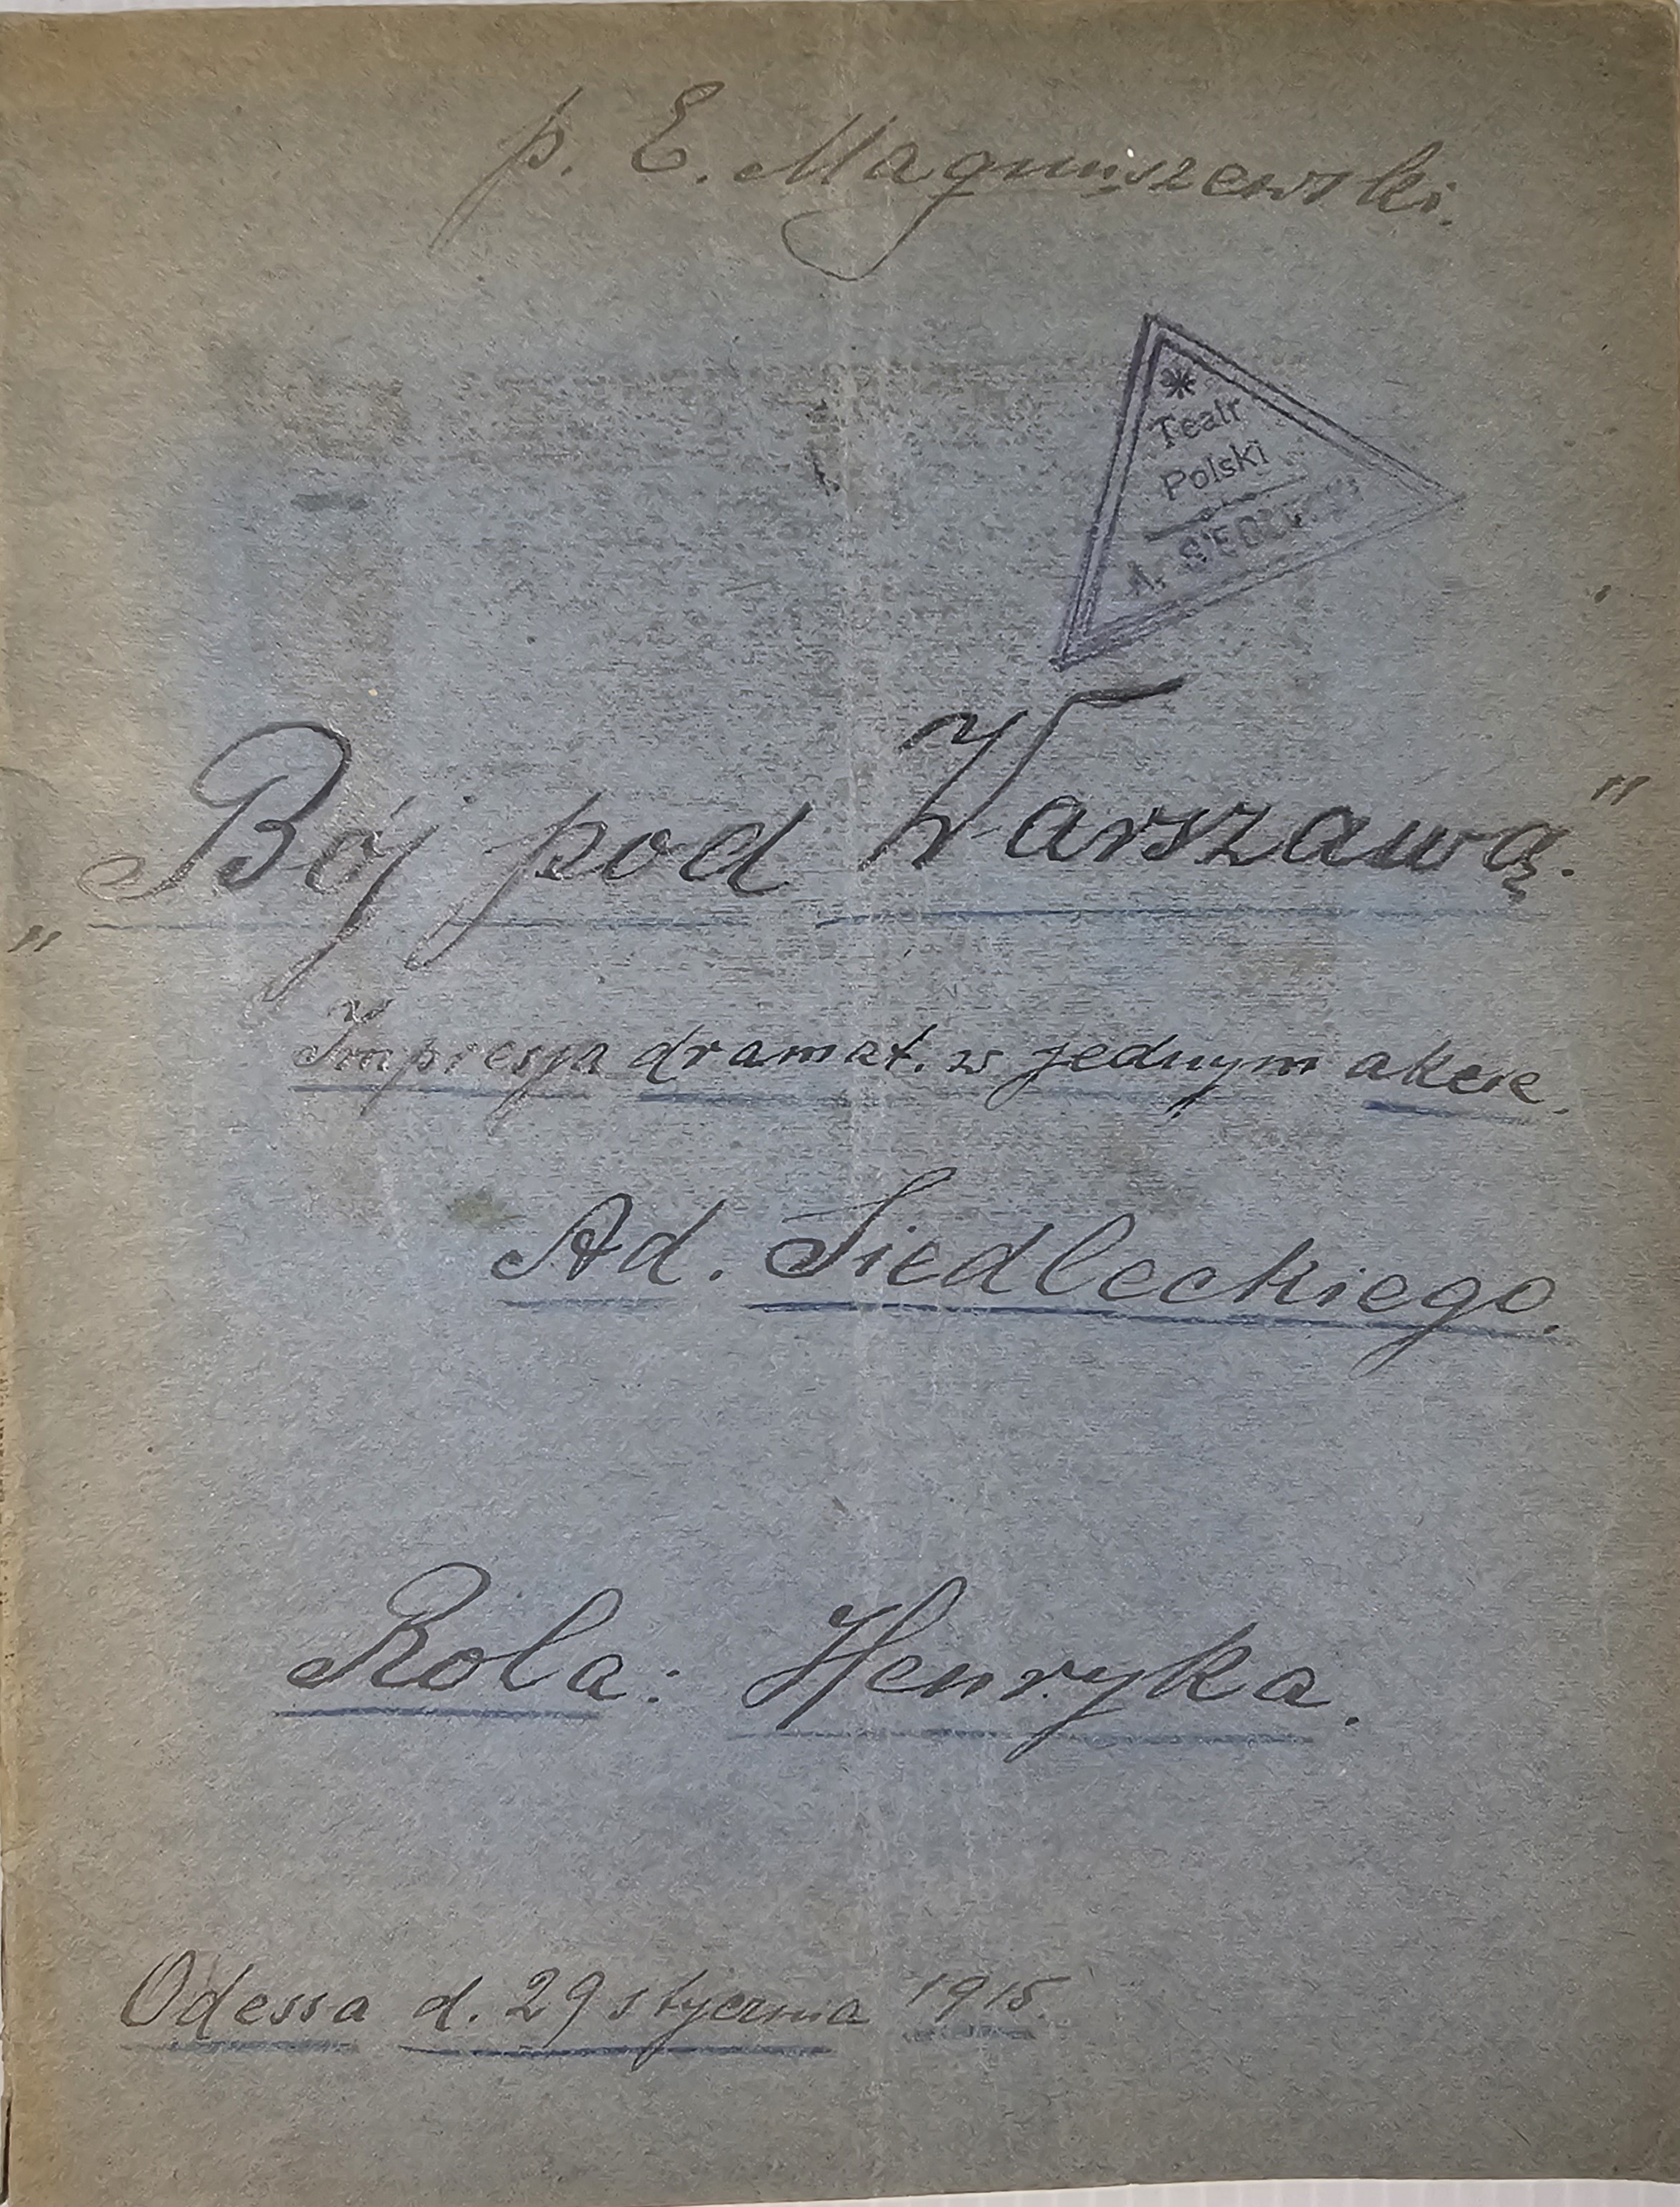 p. E. Magnuszewski.
*
Teatr
Polski
A.
„Bój pod Warszawą."
Impresja dramat. w jednym akcie.
Ad. Siedleckiego.
Rola: Henryka.
Odessa d. 29 stycznia 1915.